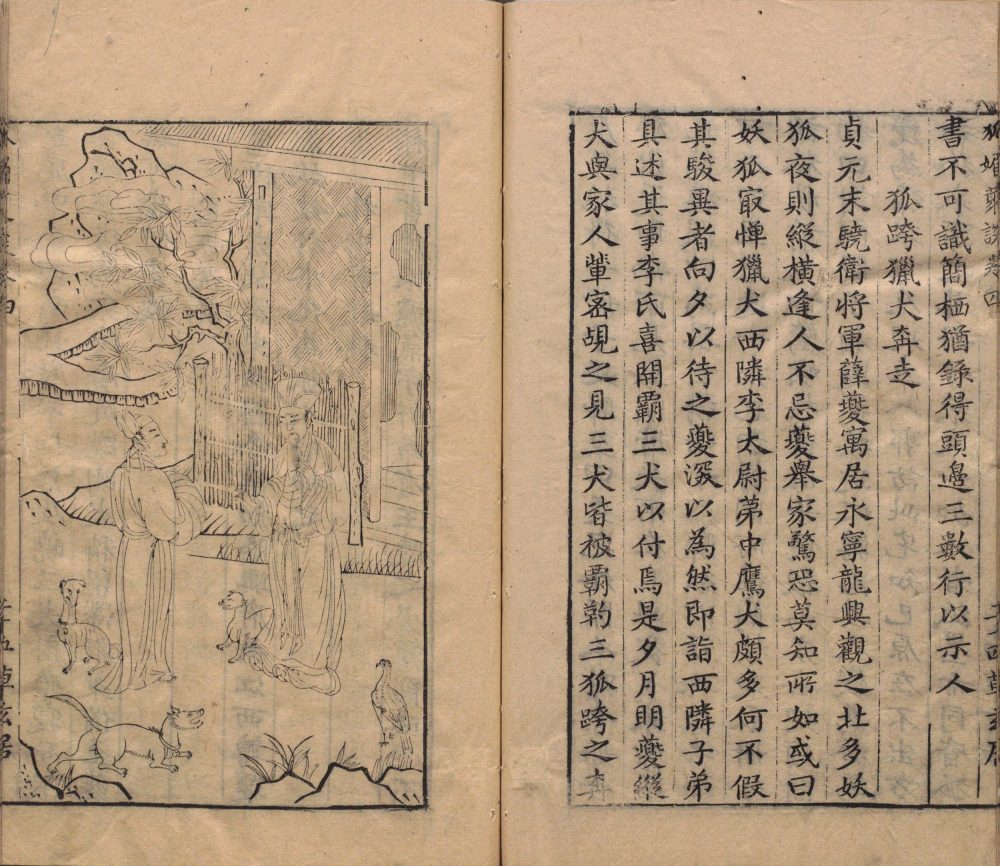 狐媚叢談卷四
書不可識簡栖猶錄得頭邊三數行以示人
狐跨獵犬奔走
貞元末驍衛將軍薛夔寓居永寧龍興觀之北多妖
狐夜則縱橫逢人不忌夔舉家驚恐莫知所如或曰
妖狐㝡憚獵犬西隣李太尉第中鷹犬頗多何不假
其駿異者向夕以待之夔深以為然即詣西隣子弟
具述其事李氏喜開羈三犬以付焉是夕月明夔縱
犬與家人輩密覘之見三犬皆被羈靮三狐跨之奔
草玄居